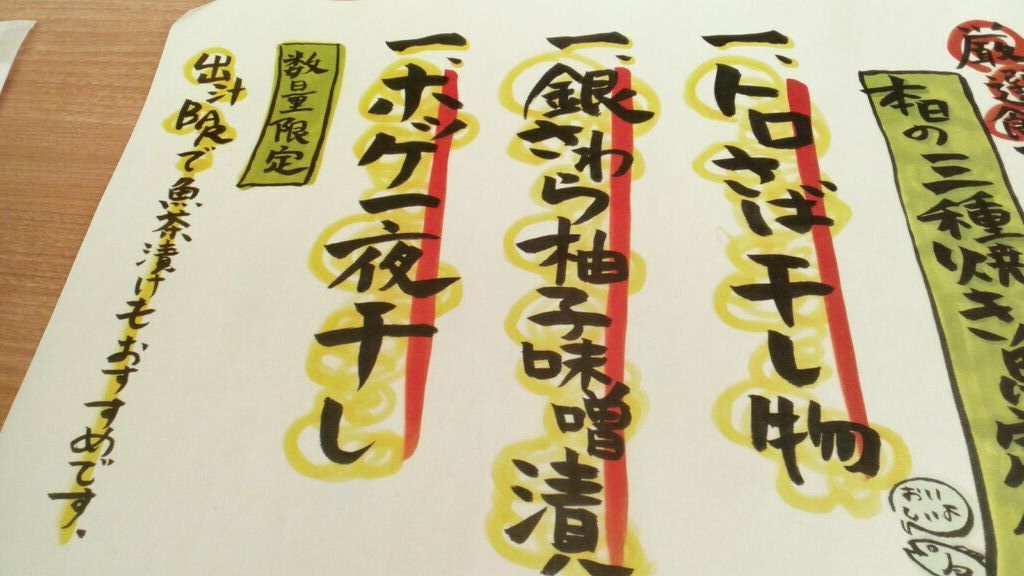 厳選
本日の三種焼き魚定
一、トロさば干し物
一、銀さわら柚子味噌漬
一、ホッケ一夜干し
数量限定
出汁BARで魚茶漬けもおすすめです.